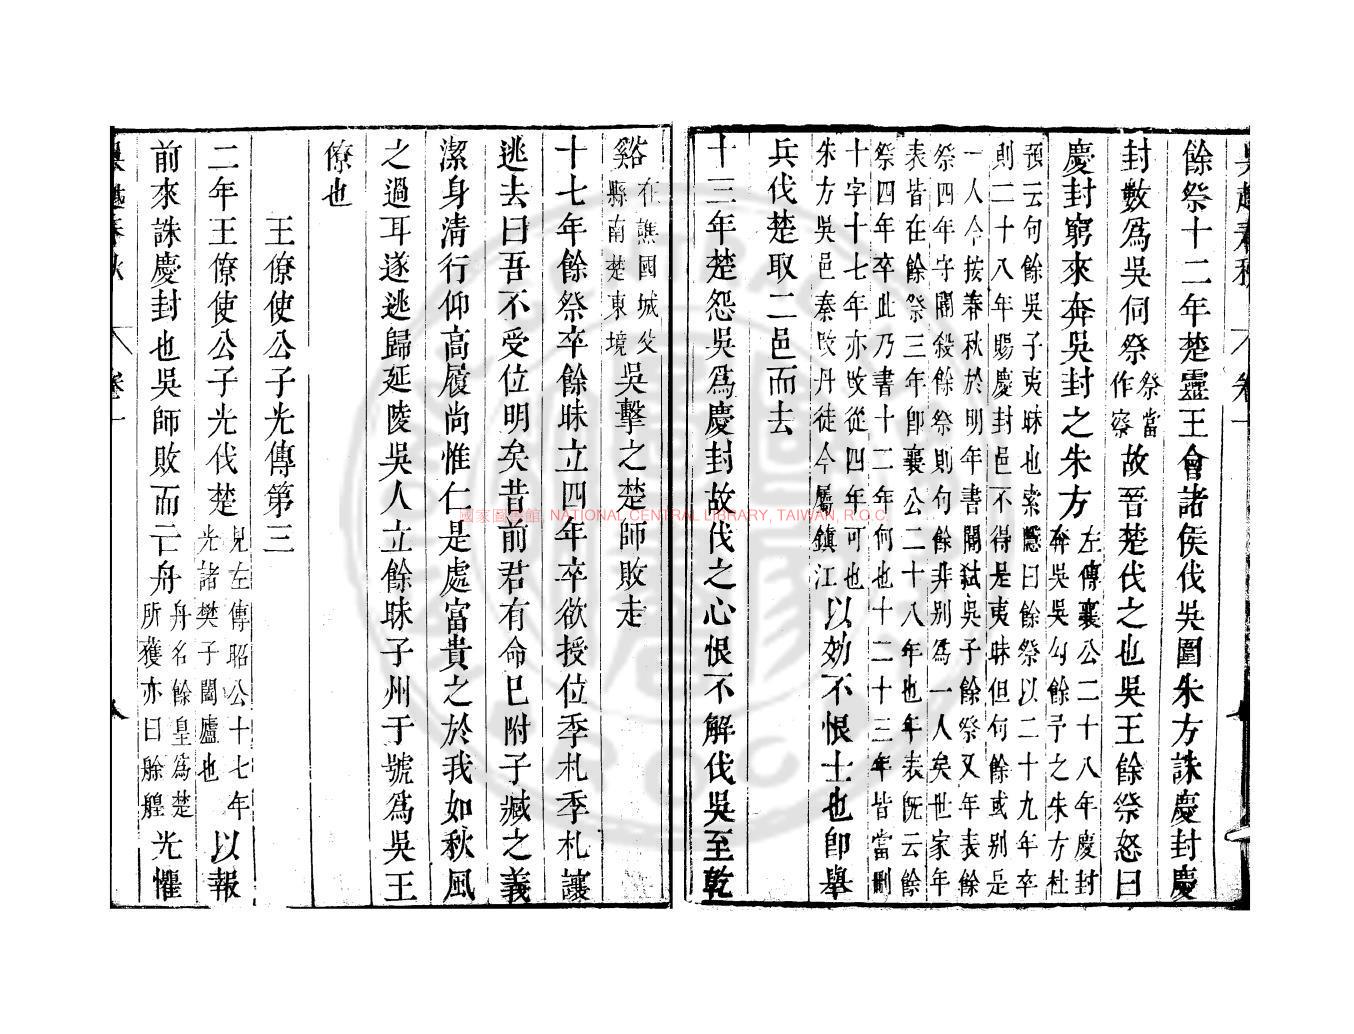 吳越春秋 卷一
餘祭十二年楚靈王會諸侯伐吳圍朱方誅慶封慶
封數爲吳伺祭祭當作察故晉楚伐之也吳王餘祭怒曰
慶封窮來奔吳封之朱方左傳襄公二十八年慶封奔吳吳勾餘予之朱方杜
預云句餘吳子夷昧也索隱曰餘祭以二十九年卒則二十八年賜慶封邑不得是夷昧但句餘或别是
一人今按春秋於明年書閽弑吳子餘祭又年表餘祭四年字閽殺餘祭則句餘非别爲一人矣世家年
表皆在餘祭三年卽襄公二十八年也年表既云餘祭四年卒此乃書十二年何也十二十三年皆當刪
十字十七年亦攺從四年可也朱方吳邑秦攺丹徒今屬鎮江以効不恨士也卽舉
兵伐楚取二邑而去
十三年楚怨吳爲慶封故伐之心恨不解伐吳至乾
谿在譙國城父縣南楚東境吳擊之楚師敗走
十七年餘祭卒餘昧立四年卒欲授位季札季札讓
逃去曰吾不受位明矣昔前君有命已附子臧之義
潔身清行仰高履尚惟仁是處富貴之於我如秋風
之過耳遂逃歸延陵吳人立餘昧子州于號爲吳王
僚也
王僚使公子光傳第三
二年王僚使公子光伐楚見左傳昭公十七年光諸樊子闔廬也以報
前來誅慶封也吳師敗而亡舟舟名餘皇爲楚所獲亦曰艅艎光懼
吳越春秋 卷一